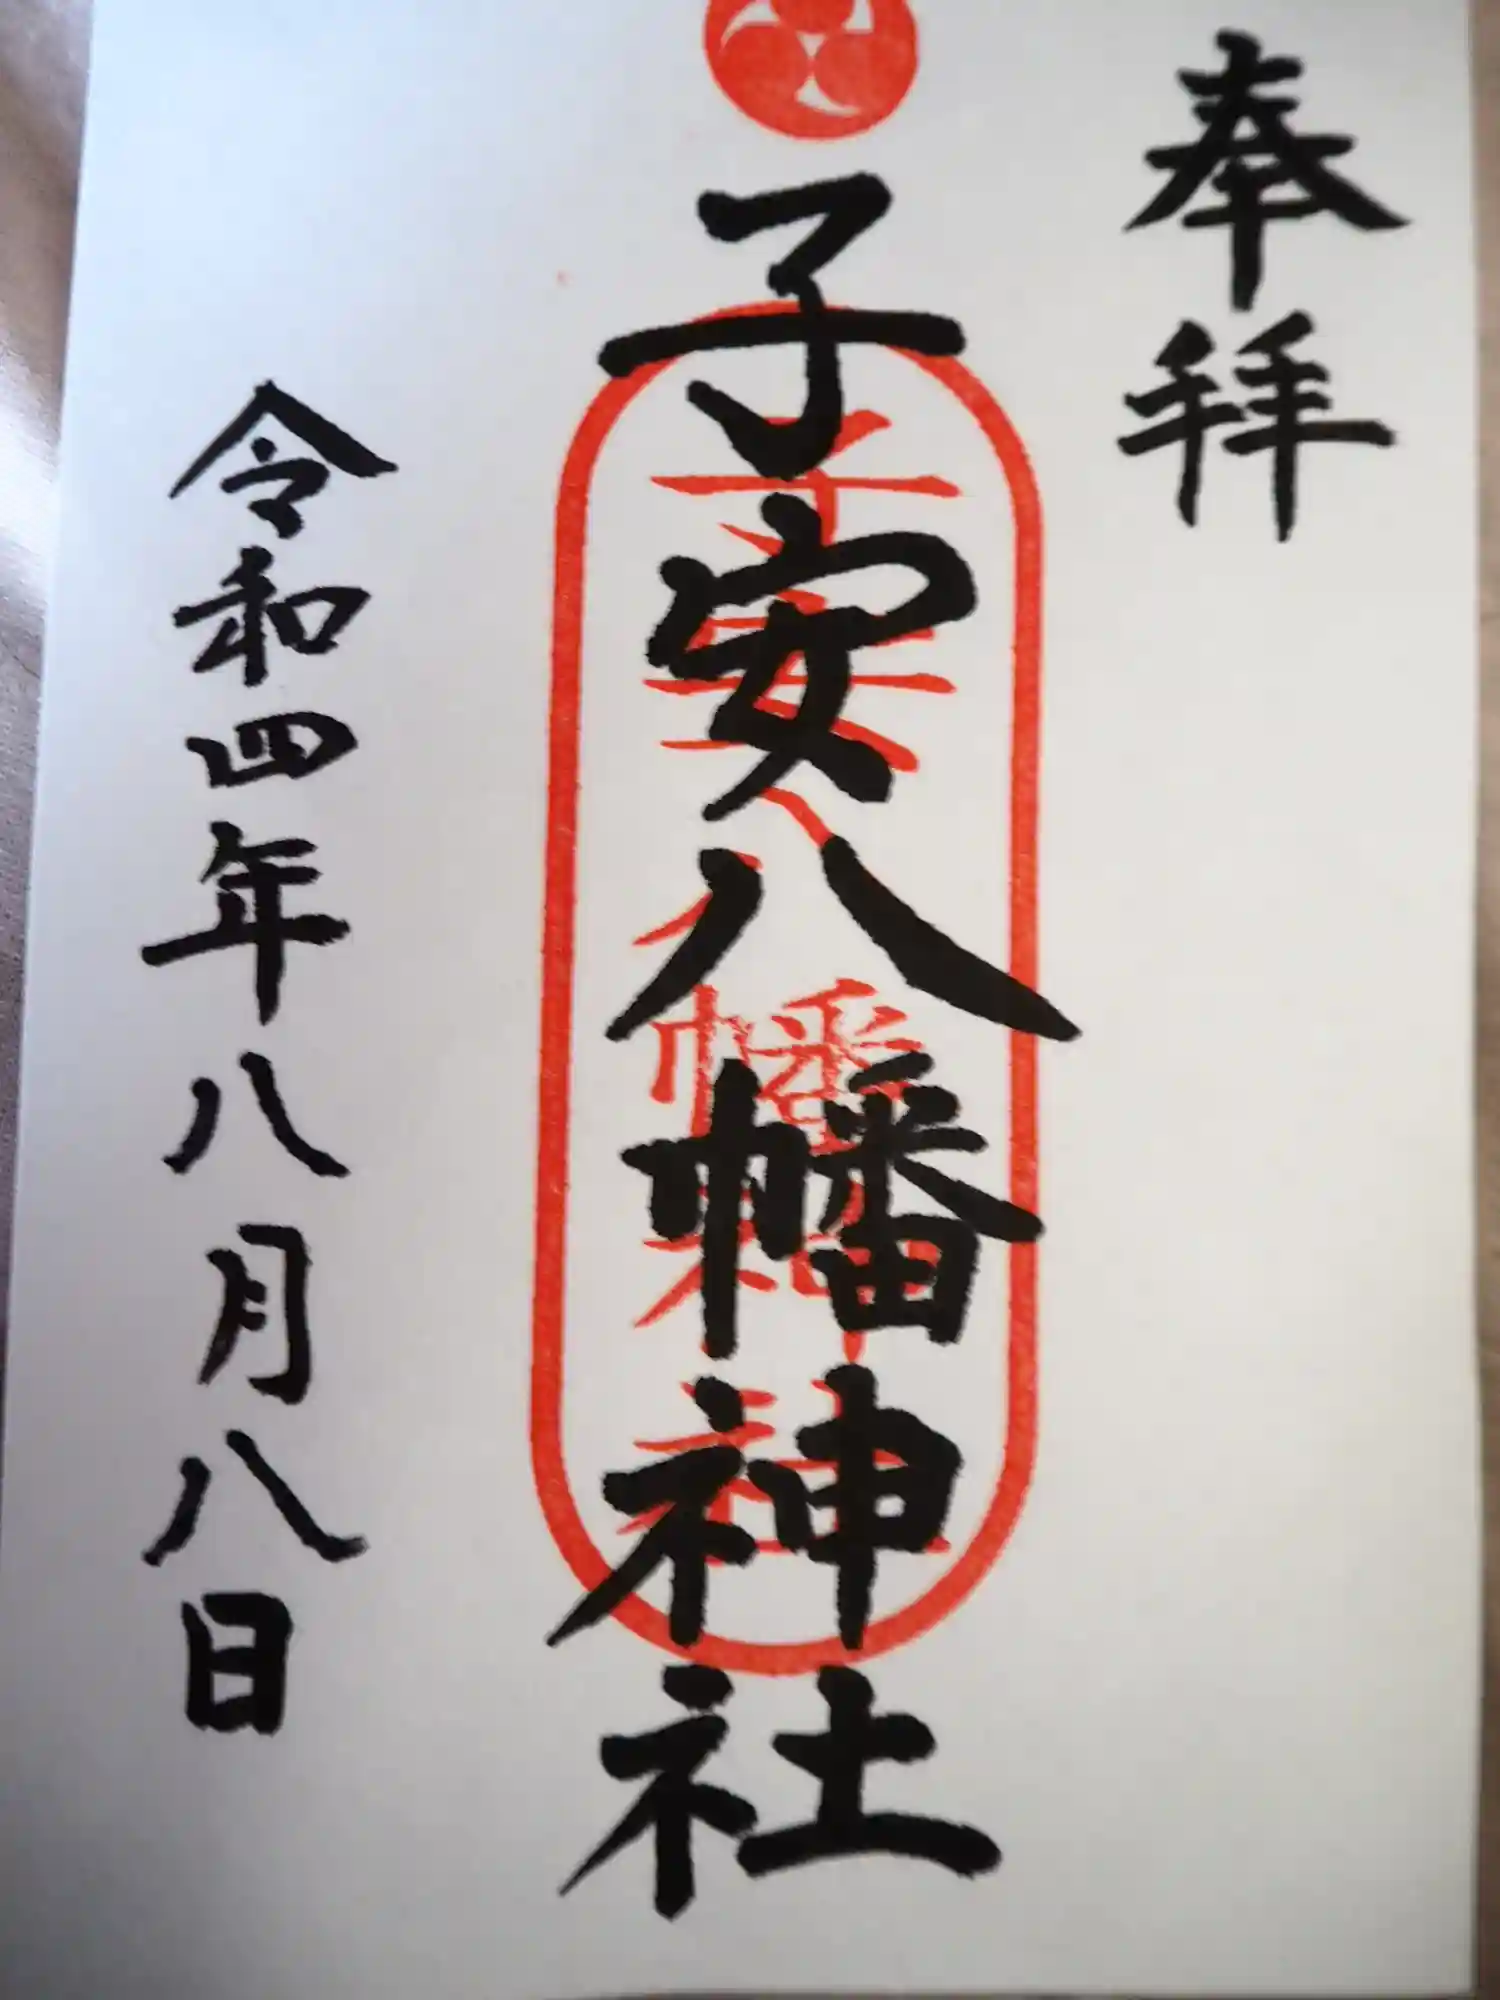 奉拝
子安八幡神社
子安八幡神社
令和四年八月八日